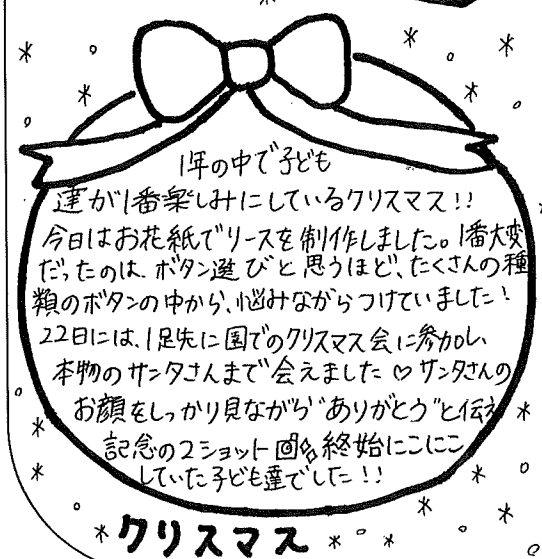 1年の中で子ども
達が1番楽しみにしているクリスマス!!
今日はお花紙でリースを制作しました。1番大変
だったのは、ボタン選びと思うほど、たくさんの種
類のボタンの中から、悩みながらつけていました!
22日には、1足先に園でのクリスマス会に参加し、
本物のサンタさんまで会えました♡サンタさんの
お顔をしっかり見ながら"ありがとう"と伝え
記念の2ショット 終始にこにこ
していた子ども達でした!!
クリスマス